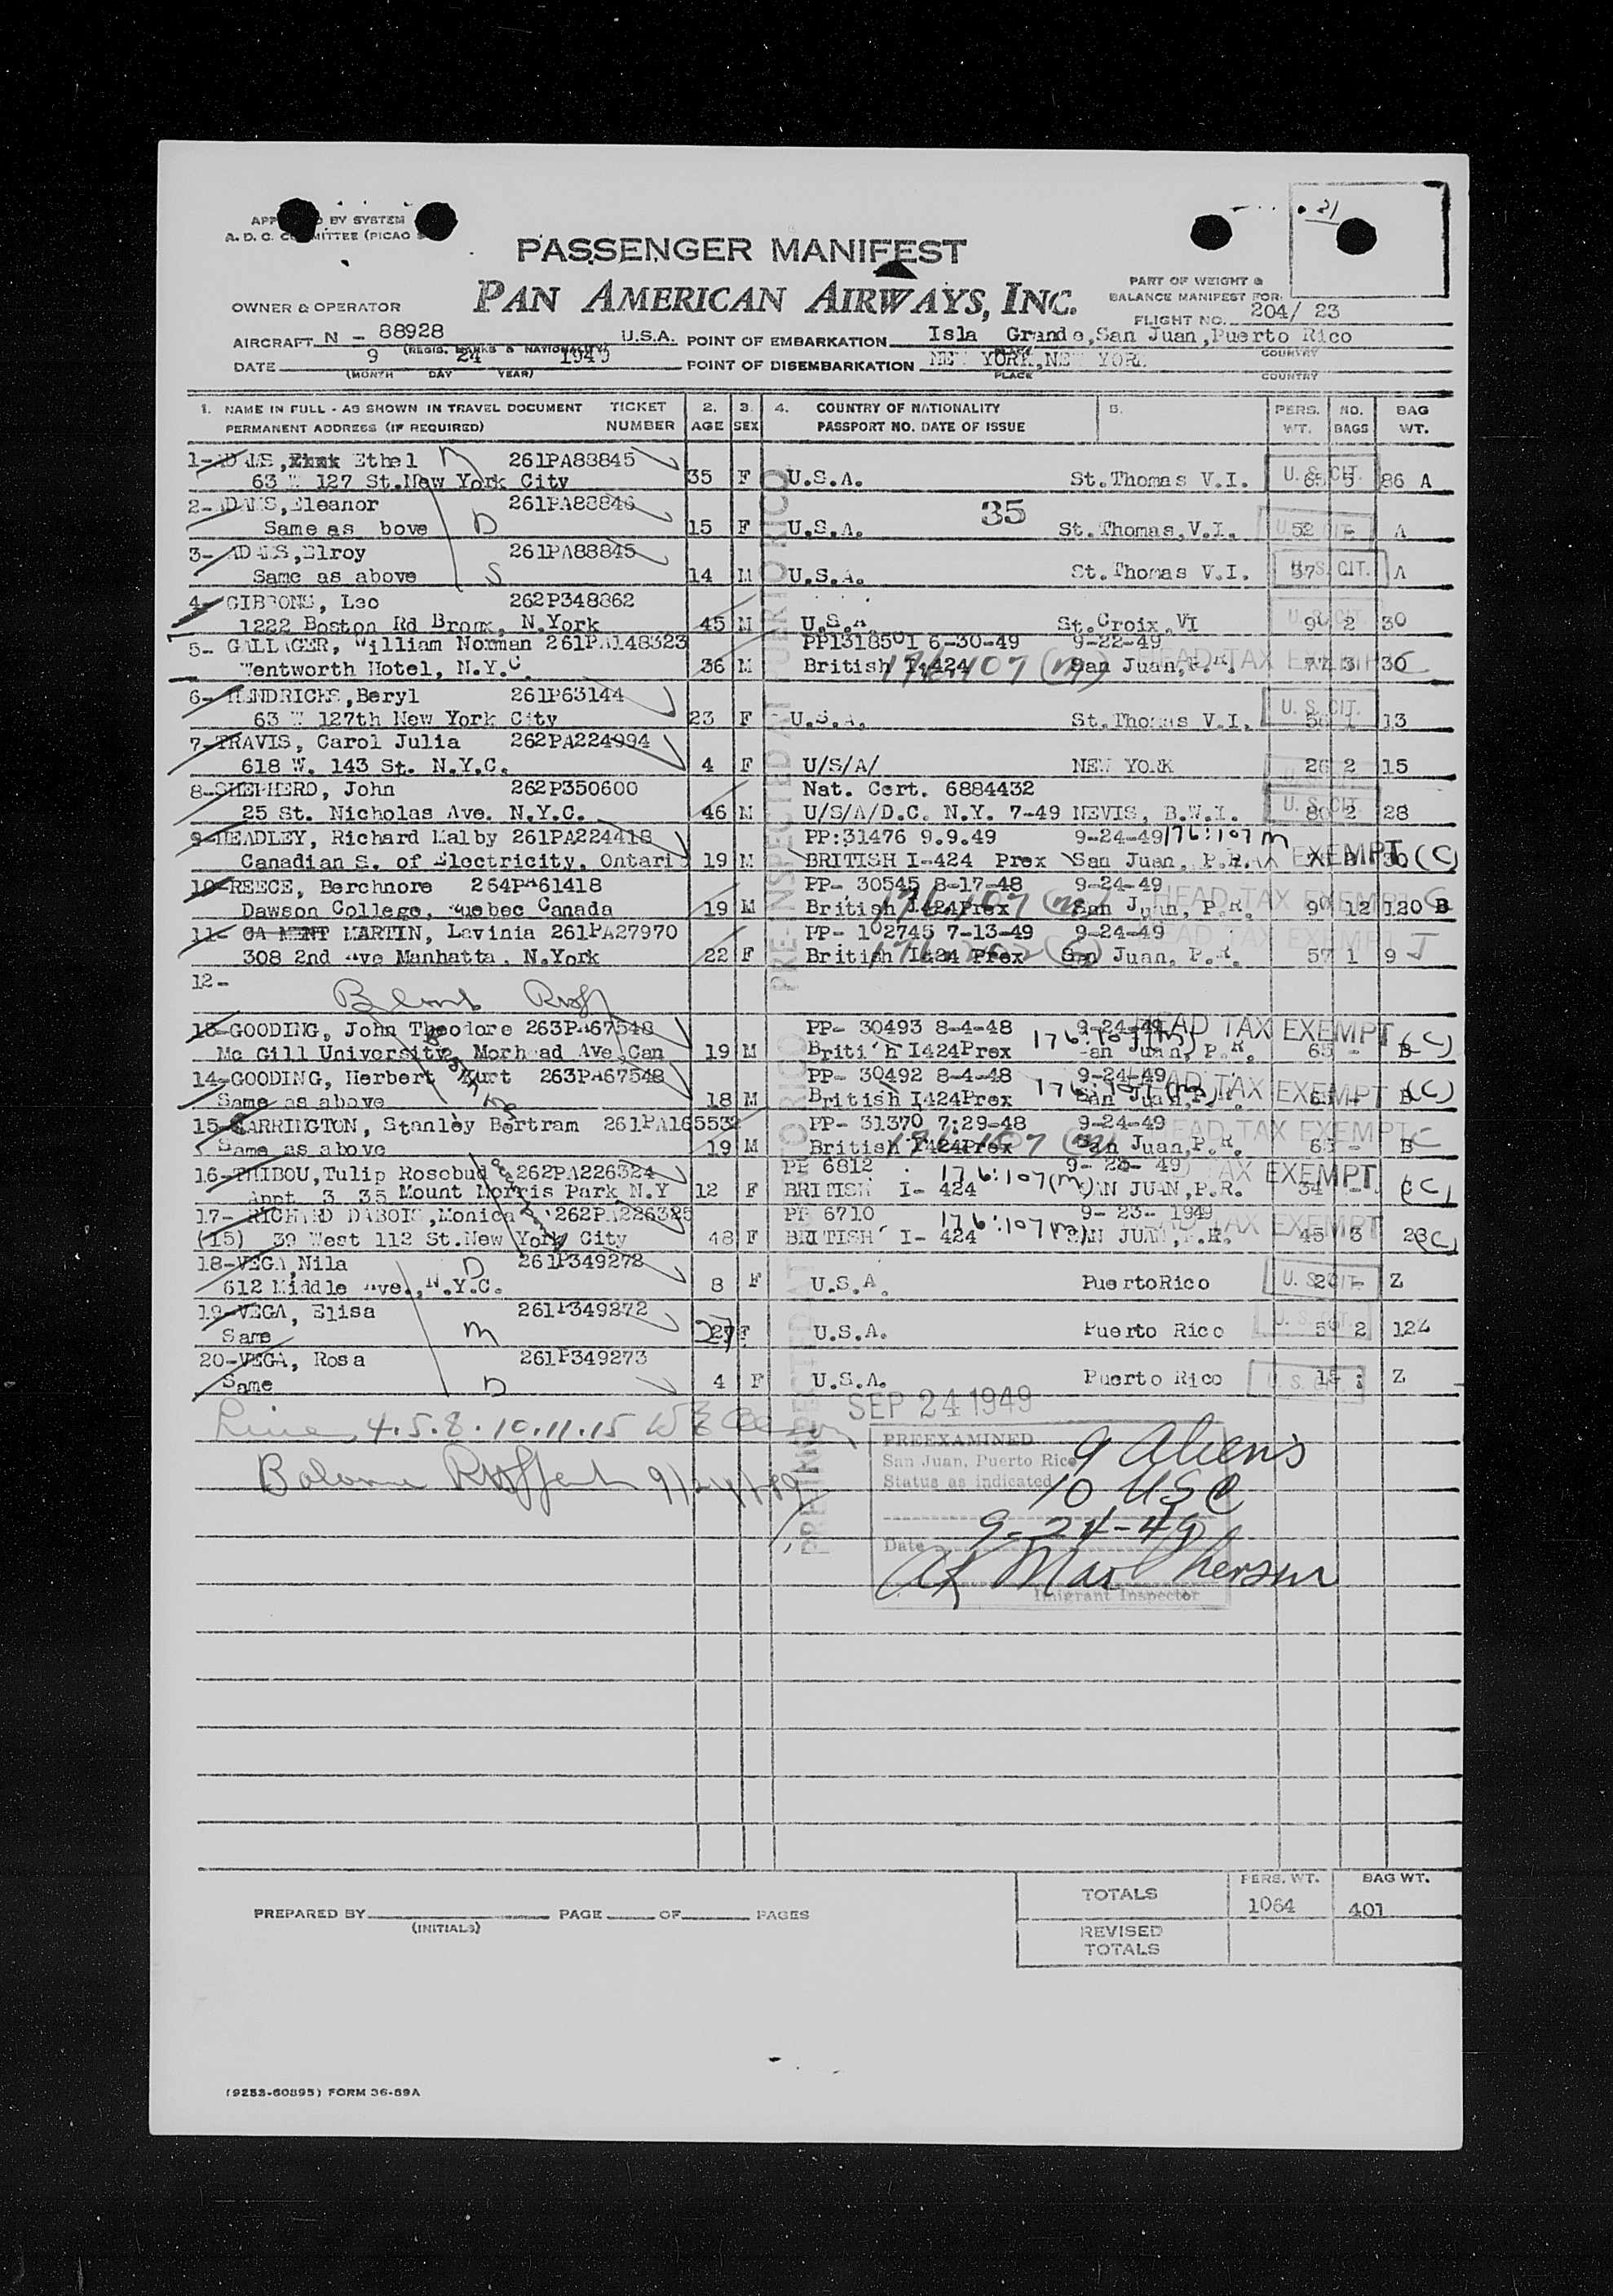 BY SYSTEM
A. D. C. COMMITTEE (PICAO
PASSENGER MANIFEST
PAN AMERICAN AIRWAYS, INC.
PART OF WEIGHT &
BALANCE MANIFEST FOR
OWNER & OPERATOR
FLIGHT NO. 204/ 23
AIRCRAFT N - 88928 U.S.A. POINT OF EMBARKATION Isla Grande, San Juan, Puerto Rico
(REGIS. MARKS & NATIONALITY) COUNTRY
DATE 9 24 1949 POINT OF DISEMBARKATION NEW YORK, NEW YORK
(MONTH DAY YEAR) PLACE COUNTRY
1. NAME IN FULL - AS SHOWN IN TRAVEL DOCUMENT TICKET 2. 3. 4. COUNTRY OF NATIONALITY 5. PERS. NO. BAG
PERMANENT ADDRESS (IF REQUIRED) NUMBER AGE SEX PASSPORT NO. DATE OF ISSUE WT. BAGS WT.
1-ADAMS, Ethel M 261PA88845
63 W 127 St. New York City 35 F U.S.A. St.Thomas V.I. U. S. CIT. 65 5 86 A
2-ADAMS, Eleanor 261PA88846 35
Same as above D 15 F U.S.A. St.Thomas, V.I. U. S. CIT. 52 - A
3-ADAMS, Elroy 261PA88845
Same as above S 14 M U.S.A. St.Thomas V.I. U. S. CIT. 57 - A
4-GIBBONS, Leo 262P348862
1222 Boston Rd Bronx, N.York 45 M U.S.A. St.Croix, VI U. S. CIT. 90 2 30
5- GALLAGER, William Norman 261PA148323 PP1318501 6-30-49 9-22-49
Wentworth Hotel, N.Y.C. 36 M British I-424 176:107 (m) San Juan, P.R. HEAD TAX EXEMPT 77 3 30 C
6-HENDRICKS, Beryl 261P63144
63 W 127th New York City 23 F U.S.A. St.Thomas V.I. U. S. CIT. 56 1 13
7-TRAVIS, Carol Julia 262PA224994
618 W. 143 St. N.Y.C. 4 F U/S/A/ NEW YORK 26 2 15
8-SHEPHERD, John 262P350600 Nat. Cert. 6884432
25 St. Nicholas Ave. N.Y.C. 46 M U/S/A/D.C. N.Y. 7-49 NEVIS, B.W.I. U. S. CIT. 80 2 28
9-HEADLEY, Richard Malby 261PA224418 PP:31476 9.9.49 9-24-49 176:107 m
Canadian S. of Electricity, Ontari 19 M BRITISH I-424 Prex San Juan, P.R. TAX EXEMPT 30 (C)
10-REECE, Berchnore 264PA61418 PP- 30545 8-17-48 9-24-49
Dawson College, Quebec Canada 19 M British I424Prex 176:107 (m) San Juan, P.R. HEAD TAX EXEMPT 90 12 120 B C
11- MARTIN, Lavinia 261PA27970 PP- 102745 7-13-49 9-24-49
308 2nd Ave Manhatta. N.York 22 F British I424 Prex San Juan, P.R. HEAD TAX EXEMPT 57 1 9 J
12-
13-GOODING, John Theodore 263PA67548 PP- 30493 8-4-48 9-24-49 HEAD TAX EXEMPT
Mc Gill University, Morhead Ave, Can 19 M British I424Prex 176:107(m) San Juan, P.R. 65 - B (C)
14-GOODING, Herbert Kurt 263PA67548 PP- 30492 8-4-48 9-24-49 HEAD TAX EXEMPT
Same as above 18 M British I424Prex 176:107(m) San Juan, P.R. B (C)
15-CARRINGTON, Stanley Bertram 261PA165532 PP- 31370 7:29-48 9-24-49 HEAD TAX EXEMPT
Same as above 19 M British I424Prex 176:107 (m) San Juan, P.R. 63 - B C
16-THIBOU, Tulip Rosebud 262PA226324 PP 6812 9- 23- 49
Appt 3 35 Mount Morris Park N.Y 12 F BRITISH I- 424 176:107(m) SAN JUAN, P.R. TAX EXEMPT 34 - (C)
17- RICHARD DABOIS, Monica 262PA226325 PP 6710 9- 23- 1949
(15) 39 West 112 St. New York City 48 F BRITISH I- 424 176:107(m) SAN JUAN, P.R. HEAD TAX EXEMPT 45 3 28 (C)
18-VEGA, Nila D 261P349272
612 Middle Ave., N.Y.C. 8 F U.S.A. PuertoRico U. S. CIT. Z
19-VEGA, Elisa 261P349272
Same M 27 F U.S.A. Puerto Rico U. S. CIT. 2 12
20-VEGA, Rosa 261P349273
Same D 4 F U.S.A. Puerto Rico U. S. CIT. Z
PRE-INSPECTED AT PUERTO RICO
SEP 24 1949
Lines 4.5.8.10.11.15
PREEXAMINED 9 Aliens
San Juan, Puerto Rico
Status as indicated 10 USC
9/24/49
Date 9-24-49
Imigrant Inspector
TOTALS PERS. WT. BAG WT.
1064 401
PREPARED BY PAGE OF PAGES
(INITIALS)
REVISED
TOTALS
(9253-60895) FORM 36-89A